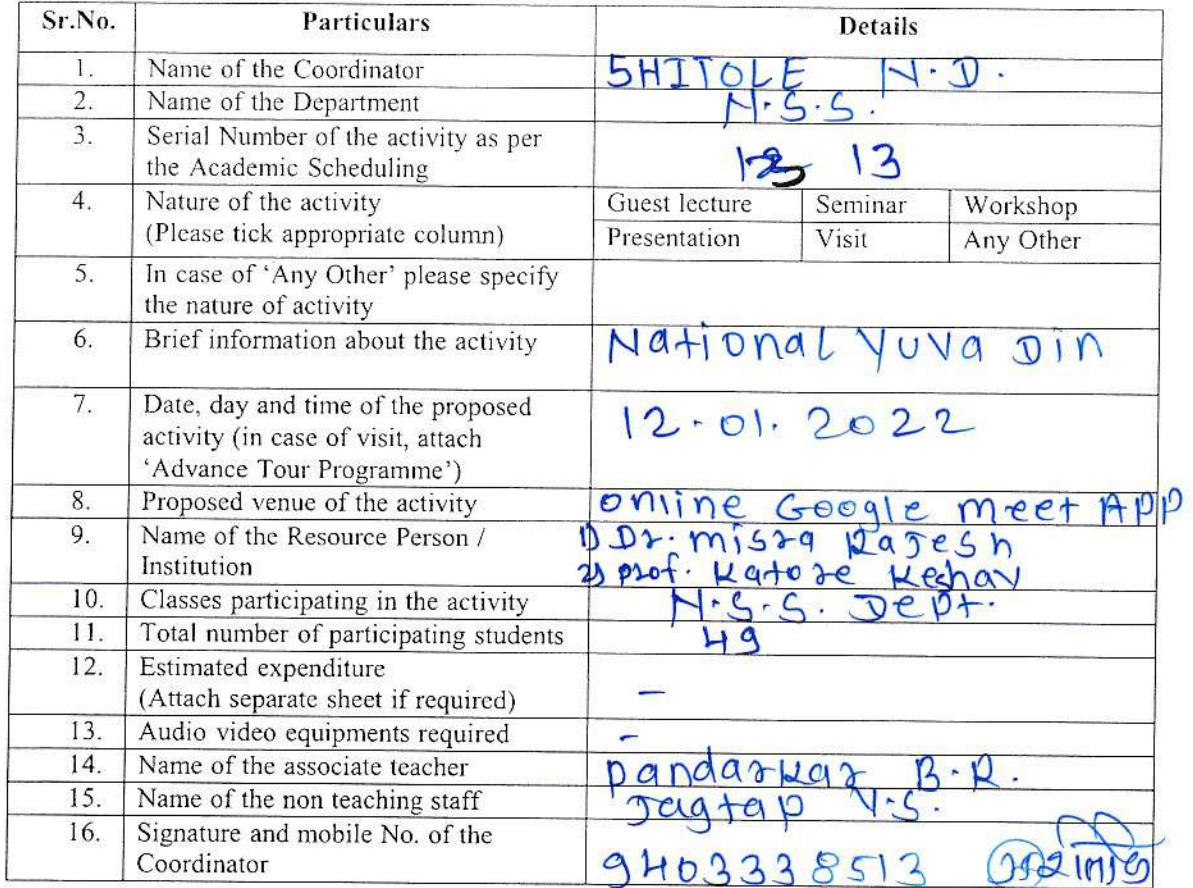 Sr.No. Particulars Details
1. Name of the Coordinator SHITOLE N.D.
2. Name of the Department N.S.S.
3. Serial Number of the activity as per
the Academic Scheduling 13
4. Nature of the activity Guest lecture Seminar Workshop
(Please tick appropriate column) Presentation Visit Any Other
5. In case of 'Any Other' please specify
the nature of activity
6. Brief information about the activity National Yuva Din
7. Date, day and time of the proposed
activity (in case of visit, attach 12.01.2022
'Advance Tour Programme')
8. Proposed venue of the activity online Google meet App
9. Name of the Resource Person / 1) Dr. misra Rajesh
Institution 2) prof. Katore Keshav
10. Classes participating in the activity N.S.S. Dept.
11. Total number of participating students 49
12. Estimated expenditure
(Attach separate sheet if required) -
13. Audio video equipments required -
14. Name of the associate teacher pandarkar B.R.
15. Name of the non teaching staff Jagtap V.S.
16. Signature and mobile No. of the
Coordinator 9403338513